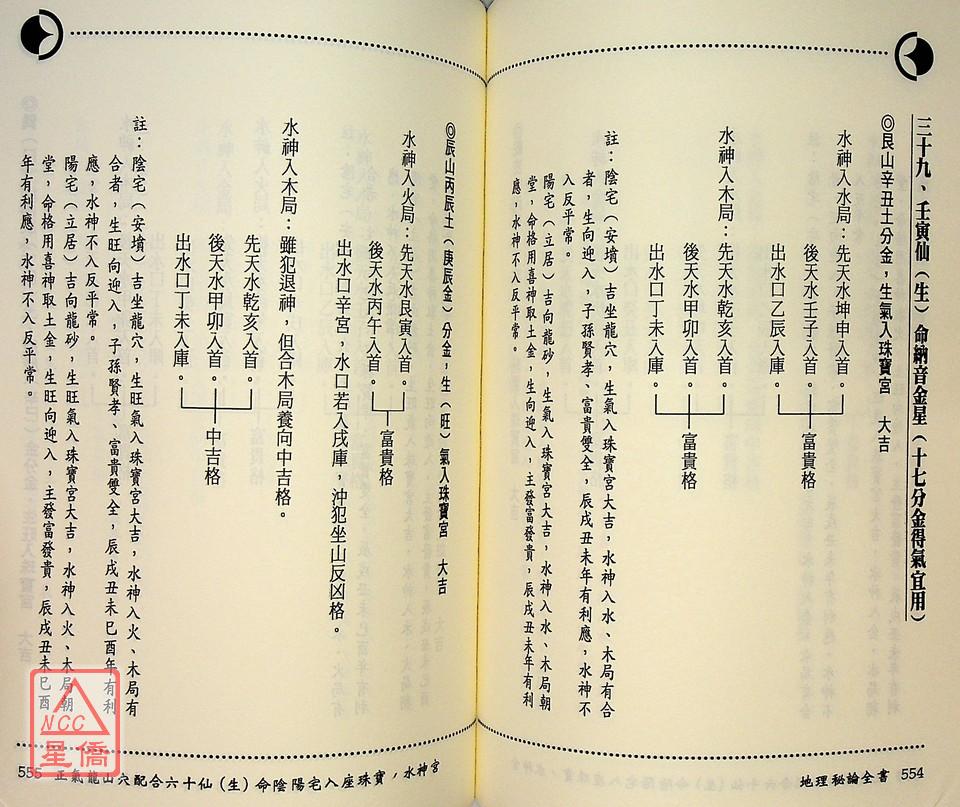 三十九、壬寅仙（生）命納音金星（十七分金得氣宜用）
◎艮山辛丑土分金，生氣入珠寶宮　大吉
水神入水局：先天水坤申入首。
後天水壬子入首。
出水口乙辰入庫。
富貴格
水神入木局：先天水乾亥入首。
後天水甲卯入首。
出水口丁未入庫。
富貴格
註：陰宅（安墳）吉坐龍穴，生氣入珠寶宮大吉，水神入水、木局有合
者，生向迎入，子孫賢孝、富貴雙全，辰戌丑未年有利應，水神不
入反平常。
陽宅（立居）吉向龍砂，生氣入珠寶宮大吉，水神入水、木局朝
堂，命格用喜神取土金，生旺向迎入，主發富發貴，辰戌丑未年有利
應，水神不入反平常。
地理秘論全書 554
◎辰山丙辰土（庚辰金）分金，生（旺）氣入珠寶宮　大吉
水神入火局：先天水艮寅入首。
後天水丙午入首。
富貴格
出水口辛宮，水口若入戌庫，沖犯坐山反凶格。
水神入木局：雖犯退神，但合木局養向中吉格。
先天水乾亥入首。
後天水甲卯入首。
出水口丁未入庫。
中吉格
註：陰宅（安墳）吉坐龍穴，生旺氣入珠寶宮大吉，水神入火、木局有
合者，生旺向迎入，子孫賢孝、富貴雙全，辰戌丑未巳酉年有利
應，水神不入反平常。
陽宅（立居）吉向龍砂，生旺氣入珠寶宮大吉，水神入火、木局朝
堂，命格用喜神取土金，生旺向迎入，主發富發貴，辰戌丑未巳酉
年有利應，水神不入反平常。
555 正氣龍山穴配合六十仙（生）命陰陽宅入座珠寶，水神宮
NCC
星僑